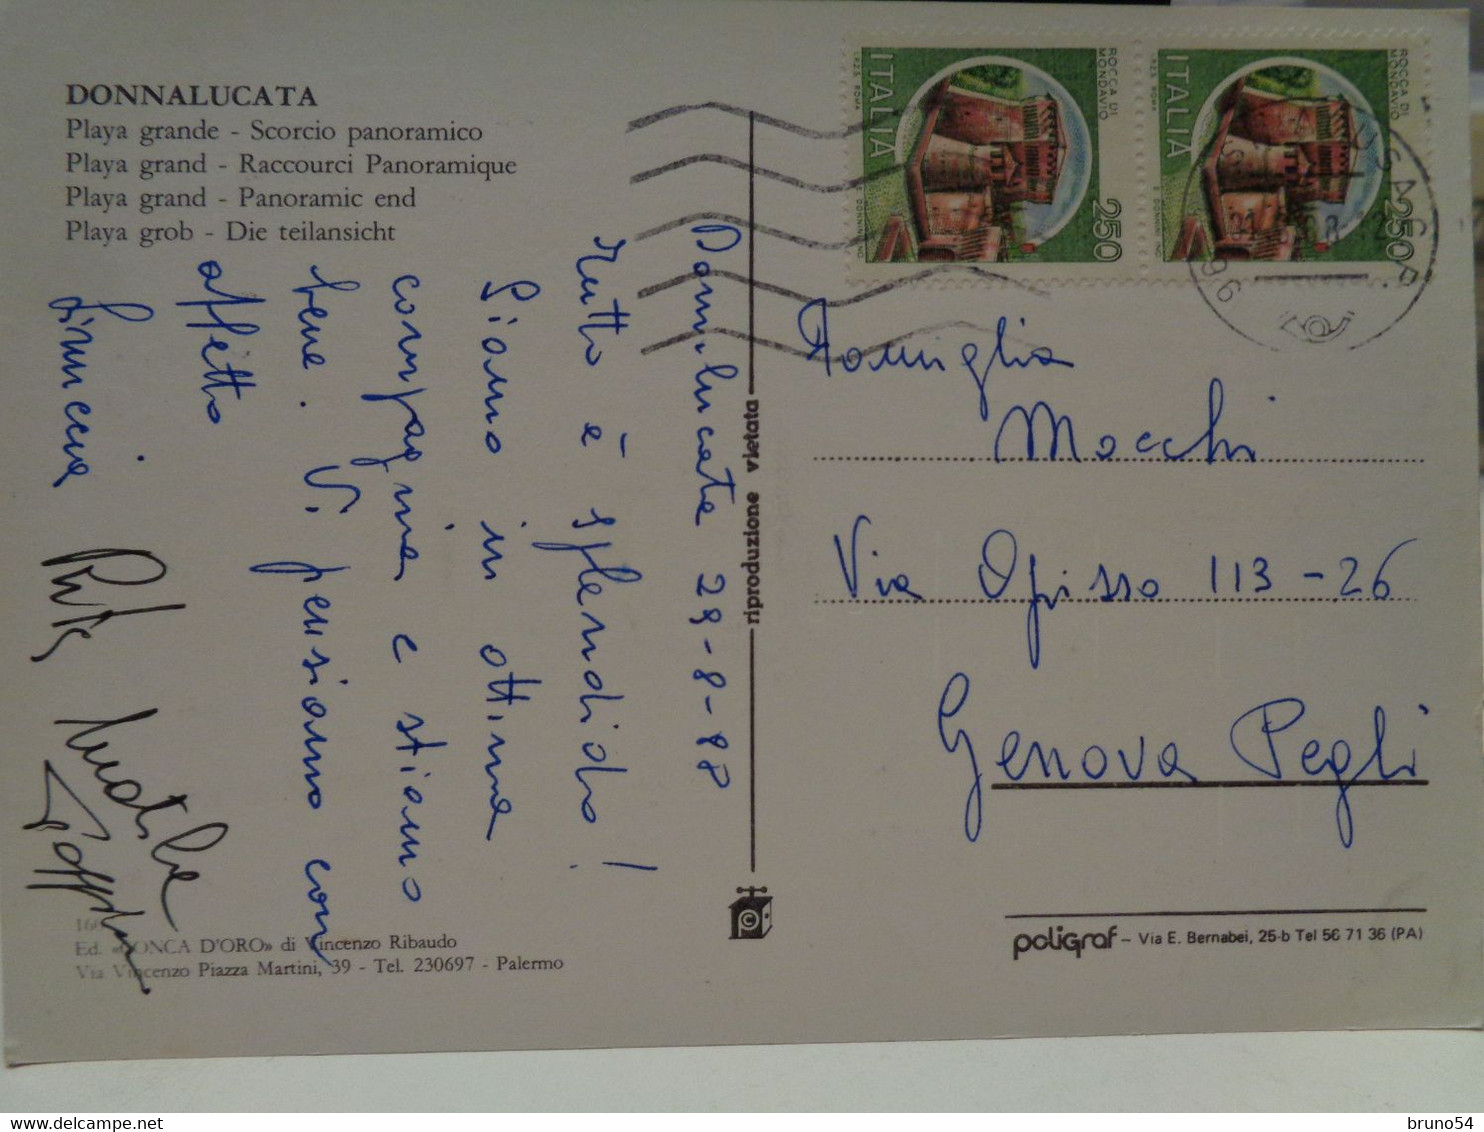 DONNALUCATA
Playa grande - Scorcio panoramico
Playa grand - Raccourci Panoramique
Playa grand - Panoramic end
Playa grob - Die teilansicht
Donnalucata 29-8-88
Tutto è splendido!
Siamo in ottima
compagnia e stiamo
bene. Vi pensiamo con
affetto
Rita
Matilde
ROCCA DI
MONDAVIO
ITALIA
250
I.P.Z.S. ROMA
E. DONNINI INC.
ROCCA DI
MONDAVIO
ITALIA
250
I.P.Z.S. ROMA
E. DONNINI INC.
Famiglia
Mocchi
Via Opisso 113-26
Genova Pegli
riproduzione vietata
©
Ed. «CONCA D'ORO» di Vincenzo Ribaudo
Via Vincenzo Piazza Martini, 39 - Tel. 230697 - Palermo
poligraf – Via E. Bernabei, 25-b Tel 56 71 36 (PA)
bruno54